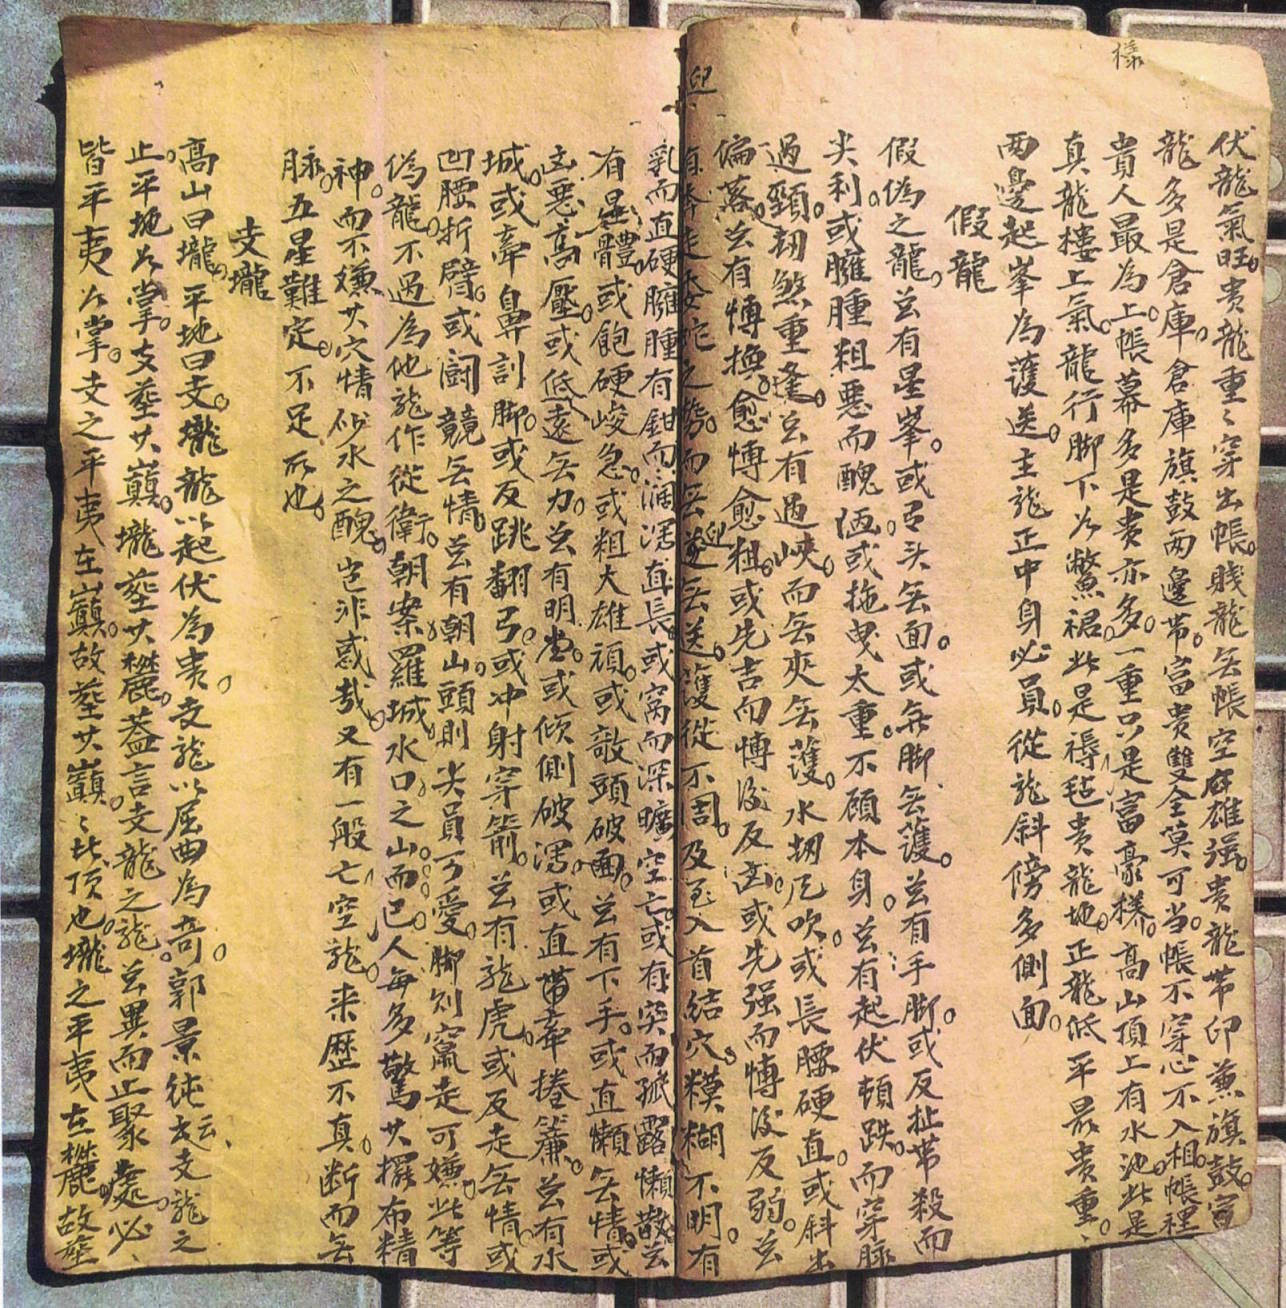 樣
伏龍氣旺。貴龍重〻穿出帳。賤龍无帳空雄强。貴龍帶印兼旗鼓。富
龍多是倉庫。倉庫旗鼓两邊帯。富貴雙全莫可当。帳不穿心不入相。帳裡
貴人最為上。帳幕多是貴亦多。一重只是富豪樣。高山頂上有水池。此是
真龍樓上氣。龍行脚下㕥鱉裙。此是褥毡貴龍地。正龍低平最貴重。
两邊起峯為護送。主龍正中身必員。從龍斜傍多側面。
假龍
假偽之龍。㒷有星峯。或召头无面。或无脚无護。㒷有手脚。或反扯带殺而
尖利。或臃腫粗悪而醜洒。或拖曳太重。不顧本身。㒷有起伏頓跌。而穿脉
過頸。刼煞重逢。㒷有過峽。而无夾无護。水刼風吹。或長腰硬直。或斜出
偏落。㒷有博換。愈博愈粗。或先吉而博後反凶。或先强而博後反弱。㒷
有奔走之勢。而无迎无送。護從不周。及至入首結穴。糢糊不明。有
乳而直硬臃腫。有鉗而濶深直長。或窩而深曠空亡。或有突而孤露懶散。㒷
有星體。或飽硬峻急。或粗大雄頑。或敧頭破面。㒷有下手。或直懶无情。或
凶惡高壓。或低遠无力。㒷有明堂。或倾側破㵼。或直帶牽捲簾。㒷有水
城。或牽鼻割脚。或反跳翻弓。或冲射穿箭。㒷有龍虎。或反走无情。或
凹腰折臂。或闘競无情。㒷有朝山。頭則尖員可愛。脚則竄走可嫌。此等
偽龍。不過為他龍作從衛。朝案羅城。水口之山而已。人每多驚其擺布精
神。而不嫌其穴情砂水之醜。豈非惑哉。又有一般亡空龍。来歷不真。断而无
脉。五星難定。不足所也。
支壠
高山曰壠。平地曰支。壠龍以起伏為貴。支龍以屈曲為奇。郭景純云。支龍之
止。平地㕥掌。支塟其巔。壠塟其麓。葢言支龍之龍。㒷異而止聚處。必
皆平夷㕥掌。支之平夷在巔。故塟其巔。〻此頂也。壠之平夷在麓。故塟